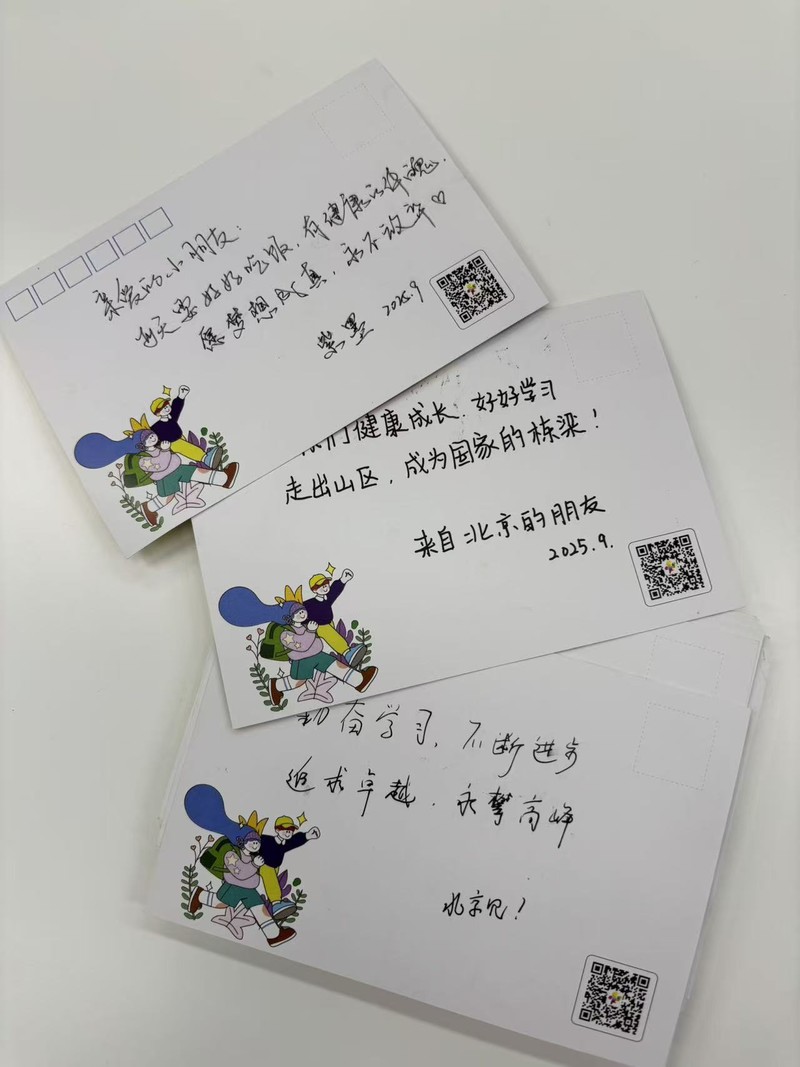 亲爱的小朋友：
每天要好好吃饭，有健康的体魄.
愿梦想成真，永不放弃♡
紫墨 2025.9
们健康成长，好好学习
走出山区，成为国家的栋梁！
来自北京的朋友
2025.9.
勤奋学习，不断进步
追求卓越，永攀高峰
北京见！